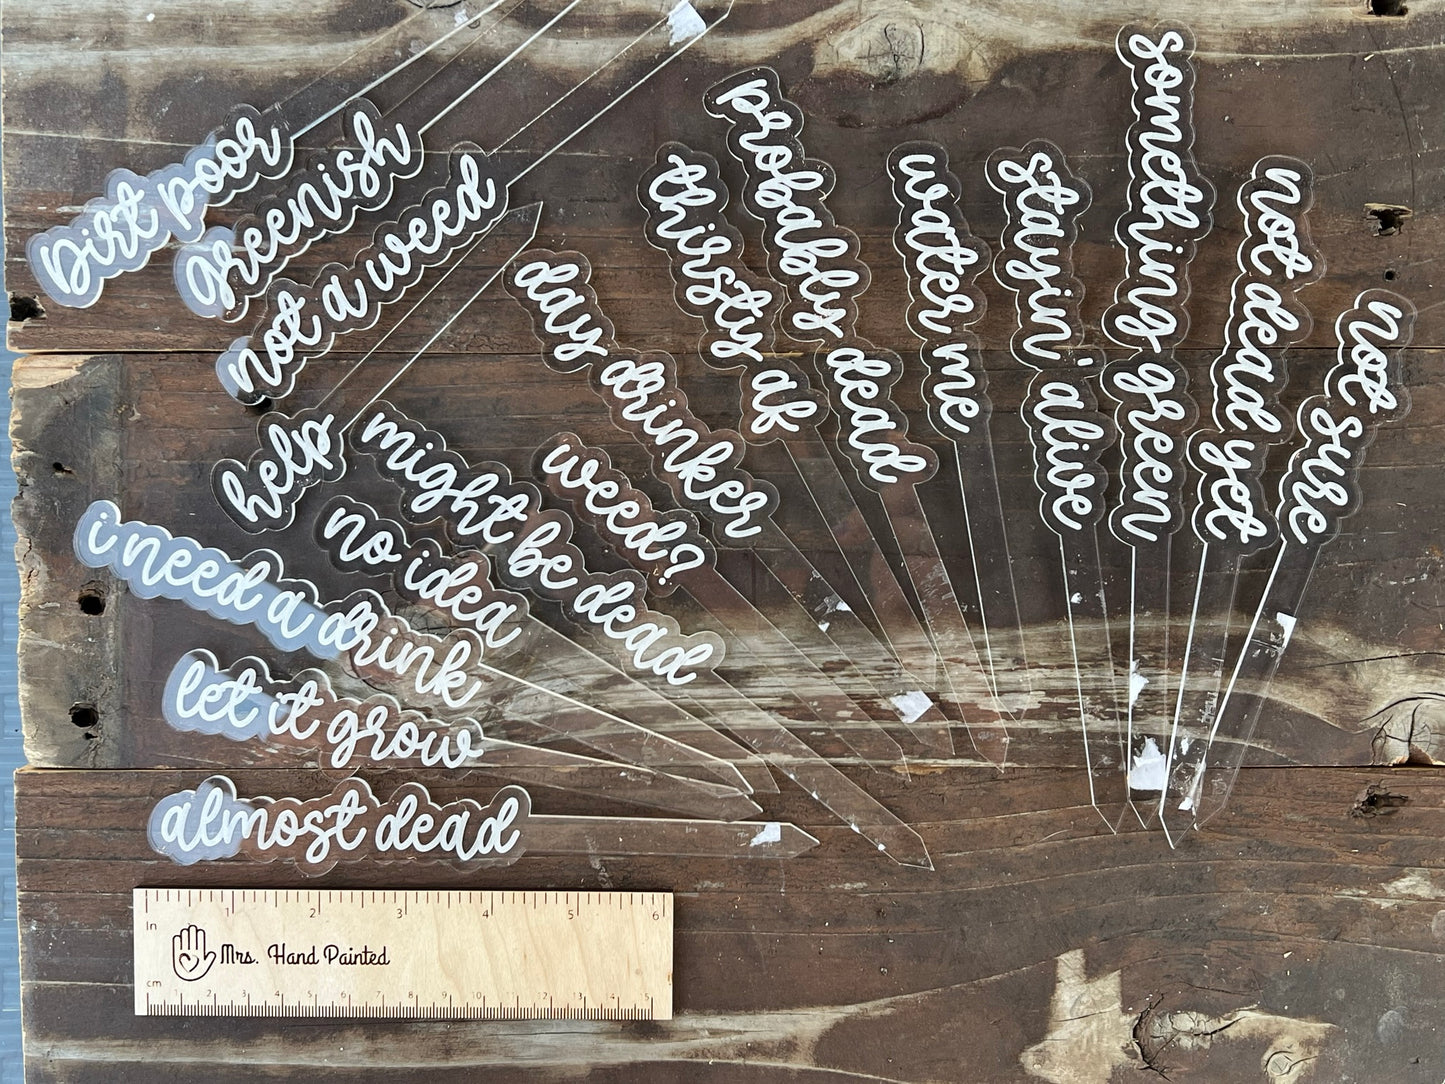 Dirt poor
Greenish
not a weed
help
day drinker
might be dead
weed?
no idea
i need a drink
let it grow
almost dead
thirsty af
probably dead
water me
stayin' alive
something green
not dead yet
not sure
In 1 2 3 4 5 6
Mrs. Hand Painted
cm 1 2 3 4 5 6 7 8 9 10 11 12 13 14 15